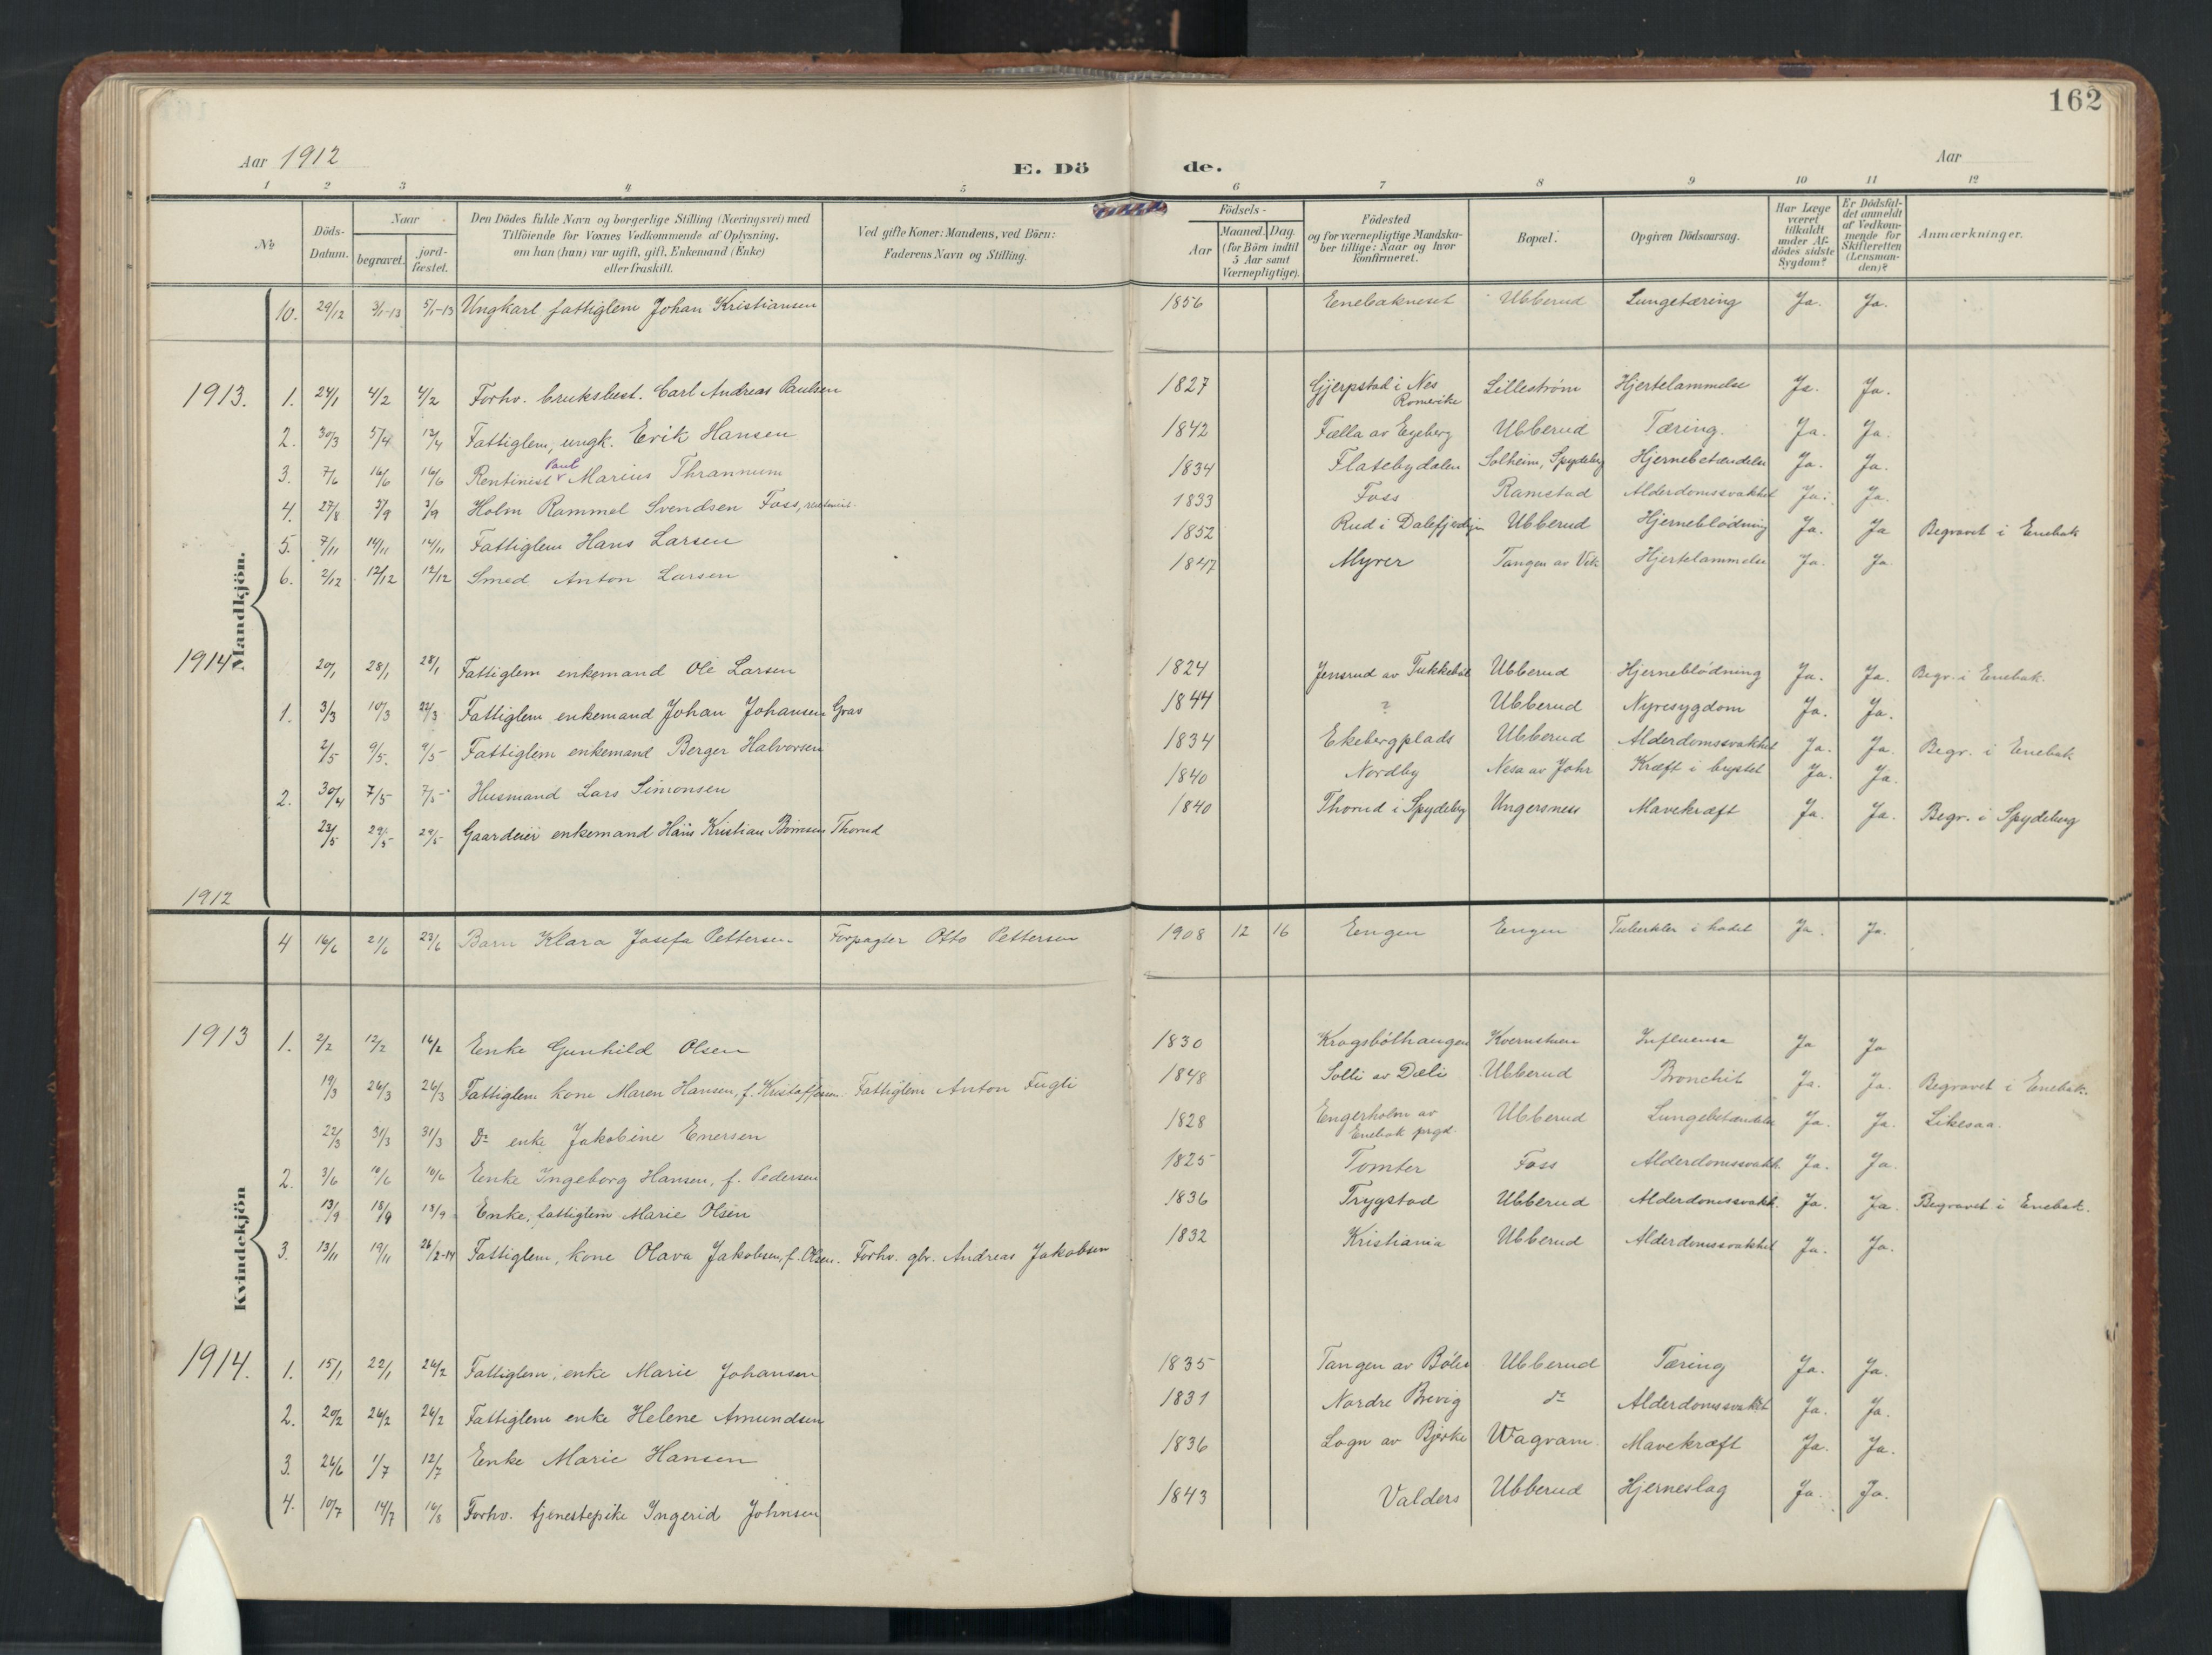 162
Aar 1912
E. Dö de.
Aar
1 2 3 4 5 6 7 8 9 10 11 12
№
Döds-Datum.
Naar
begravet.
jord-fæstet.
Den Dödes fulde Navn og borgerlige Stilling (Næringsvei) med
Tilföiende for Voxnes Vedkommende af Oplysning,
om han (hun) var ugift, gift, Enkemand (Enke)
eller fraskilt.
Ved gifte Koner: Mandens, ved Börn:
Faderens Navn og Stilling.
Födsels-
Aar
Maaned. Dag.
(for Börn indtil
5 Aar samt
Værnepligtige).
Födested
og for værnepligtige Mandska-
ber tillige: Naar og hvor
konfirmeret.
Bopæl.
Opgiven Dödsaarsag.
Har Læge
været
tilkaldt
under Af-
dödes sidste
Sygdom?
Er Dödsfal-
det anmeldt
af Vedkom-
mende for
Skifteretten
(Lensman-
den)?
Anmærkninger.
Mandkjön.
10. 29/12 3/1-13 5/1-13 Ungkarl fattiglem Johan Kristiansen 1856 Enebakneset Ubberud Lungetæring Ja. Ja.
1913. 1. 24/1 4/2 4/2 Forhv. bruksbest. Carl Andreas Paulsen 1827 Gjerpstad i Nes Romerike Lillestrøm Hjertelammelse Ja. Ja.
2. 30/3 5/4 13/4 Fattiglem, ungk. Erik Hansen 1842 Fælla av Eyeberg Ubberud Tæring. Ja. Ja.
3. 7/6 16/6 16/6 Rentinist Paul Marius Thrannum 1834 Flatebydalen Solheim, Spydeberg Hjernebetændelse Ja. Ja.
4. 27/8 3/9 3/9 Holm Rammel Svendsen Foss, 1833 Foss Ramstad Alderdomssvakhet Ja. Ja.
5. 7/11 14/11 14/11 Fattiglem Hans Larsen 1852 Rud i Dalefjerdingen Ubberud Hjerneblödning Ja. Ja Begravet i Enebak
6. 2/12 12/12 12/12 Smed Anton Larsen 1847 Myrer Tangen av Vik Hjertelammelse Ja. Ja.
1914 20/1 28/1 28/1 Fattiglem enkemand Ole Larsen 1824 Jensrud av Tukkebøl Ubberud Hjerneblödning Ja. Ja. Begr. i Enebak.
1. 3/3 10/3 22/3 Fattiglem enkemand Johan Johansen Grav 1844 ? Ubberud Nyresygdom Ja. Ja.
2/5 9/5. 9/5 Fattiglem enkemand Berger Halvorsen 1834 Ekebergplads Ubberud Alderdomssvakhet Ja. Ja. Begr. i Enebak
2. 30/4 7/5 7/5 Husmand Lars Simonsen 1840 Nordby Nesa av Johr Kræft i brystet Ja. Ja.
23/5 29/5 29/5 Gaardeier enkemand Hans Kristian Børnsen Thorud 1840 Thorud i Spydeberg Ungersness Mavekræft Ja. Ja. Begr. i Spydeberg
1912
Kvindekjön
4 16/6 21/6 23/6 Barn Klara Josefa Pettersen Forpagter Otto Pettersen 1908 12 16 Eengen Engen Tuberkler i hodet Ja. Ja.
1913 1. 2/2 12/2 16/2 Enke Gunhild Olsen 1830 Kragsbölhaugen Kvernstuen Influensa Ja Ja
19/3 26/3 26/3 Fattiglem kone Maren Hansen, f. Kristoffersen. Fattiglem Anton Fugli 1848 Solli av Dæli Ubberud Bronchit Ja. Ja. Begravet i Enebak.
22/3 31/3 31/3 Do enke Jakobine Enersen 1828 Engerholm av Enebak prgd. Ubberud Lungebetændelse Ja. Ja. Likesaa.
2. 3/6 10/6 10/6 Enke Ingeborg Hansen, f. Pedersen 1825 Tomter Foss Alderdomssvakh. Ja. Ja.
13/9 18/9 18/9 Enke, fattiglem Marie Olsen 1836 Trygstad Ubberud Alderdomssvakh. Ja. Ja. Begravet i Enebak.
3. 13/11 19/11 26/2-14 Fattiglem, kone Olava Jakobsen, f. Olsen. Forhv. gbr. Andreas Jakobsen 1832 Kristiania Ubberud Alderdomssvakhet Ja. Ja.
1914. 1. 15/1 22/1 26/2 Fattiglem, enke Marie Johansen 1835 Tangen av Böler Ubberud Tæring Ja. Ja.
2. 20/2 26/2 26/2 Fattiglem enke Helene Amundsen 1831 Nordre Brevig do Alderdomssvakhet Ja. Ja.
3. 26/6 1/7 12/7 Enke Marie Hansen 1836 Logn av Bjerke Wagram. Mavekræft Ja. Ja.
4. 10/7 14/7 16/8 Forhv. tjenestepike Ingerid Johnsen 1843 Valders Ubberud Hjerneslag Ja. Ja.